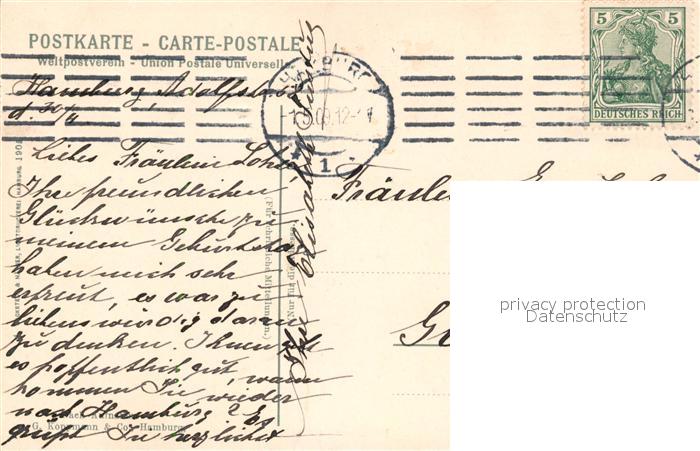 POSTKARTE - CARTE-POSTALE
Weltpostverein - Union Postale Universelle
5 5
DEUTSCHES REICH
HAMBURG
1.5.09.12-1
1
Hamburg, Adolfstr.
d. 30/4
Liebes Fräulein
Ihre freundlichen
Glückwünsche zu
meinem Geburtstag
haben mich sehr
erfreut, es war zu
liebenswürdig daran
zu denken. Ihnen geht
es hoffentlich gut,
wann
kommen Sie wieder
nach Hamburg? Es
grüßt Sie herzlichst
Ihre Elisabeth
(Für schriftliche Mitteilungen.)
(Nur für die Adresse)
G. Koopmann & Co., Hamburg
Fräulein
privacy protection
Datenschutz